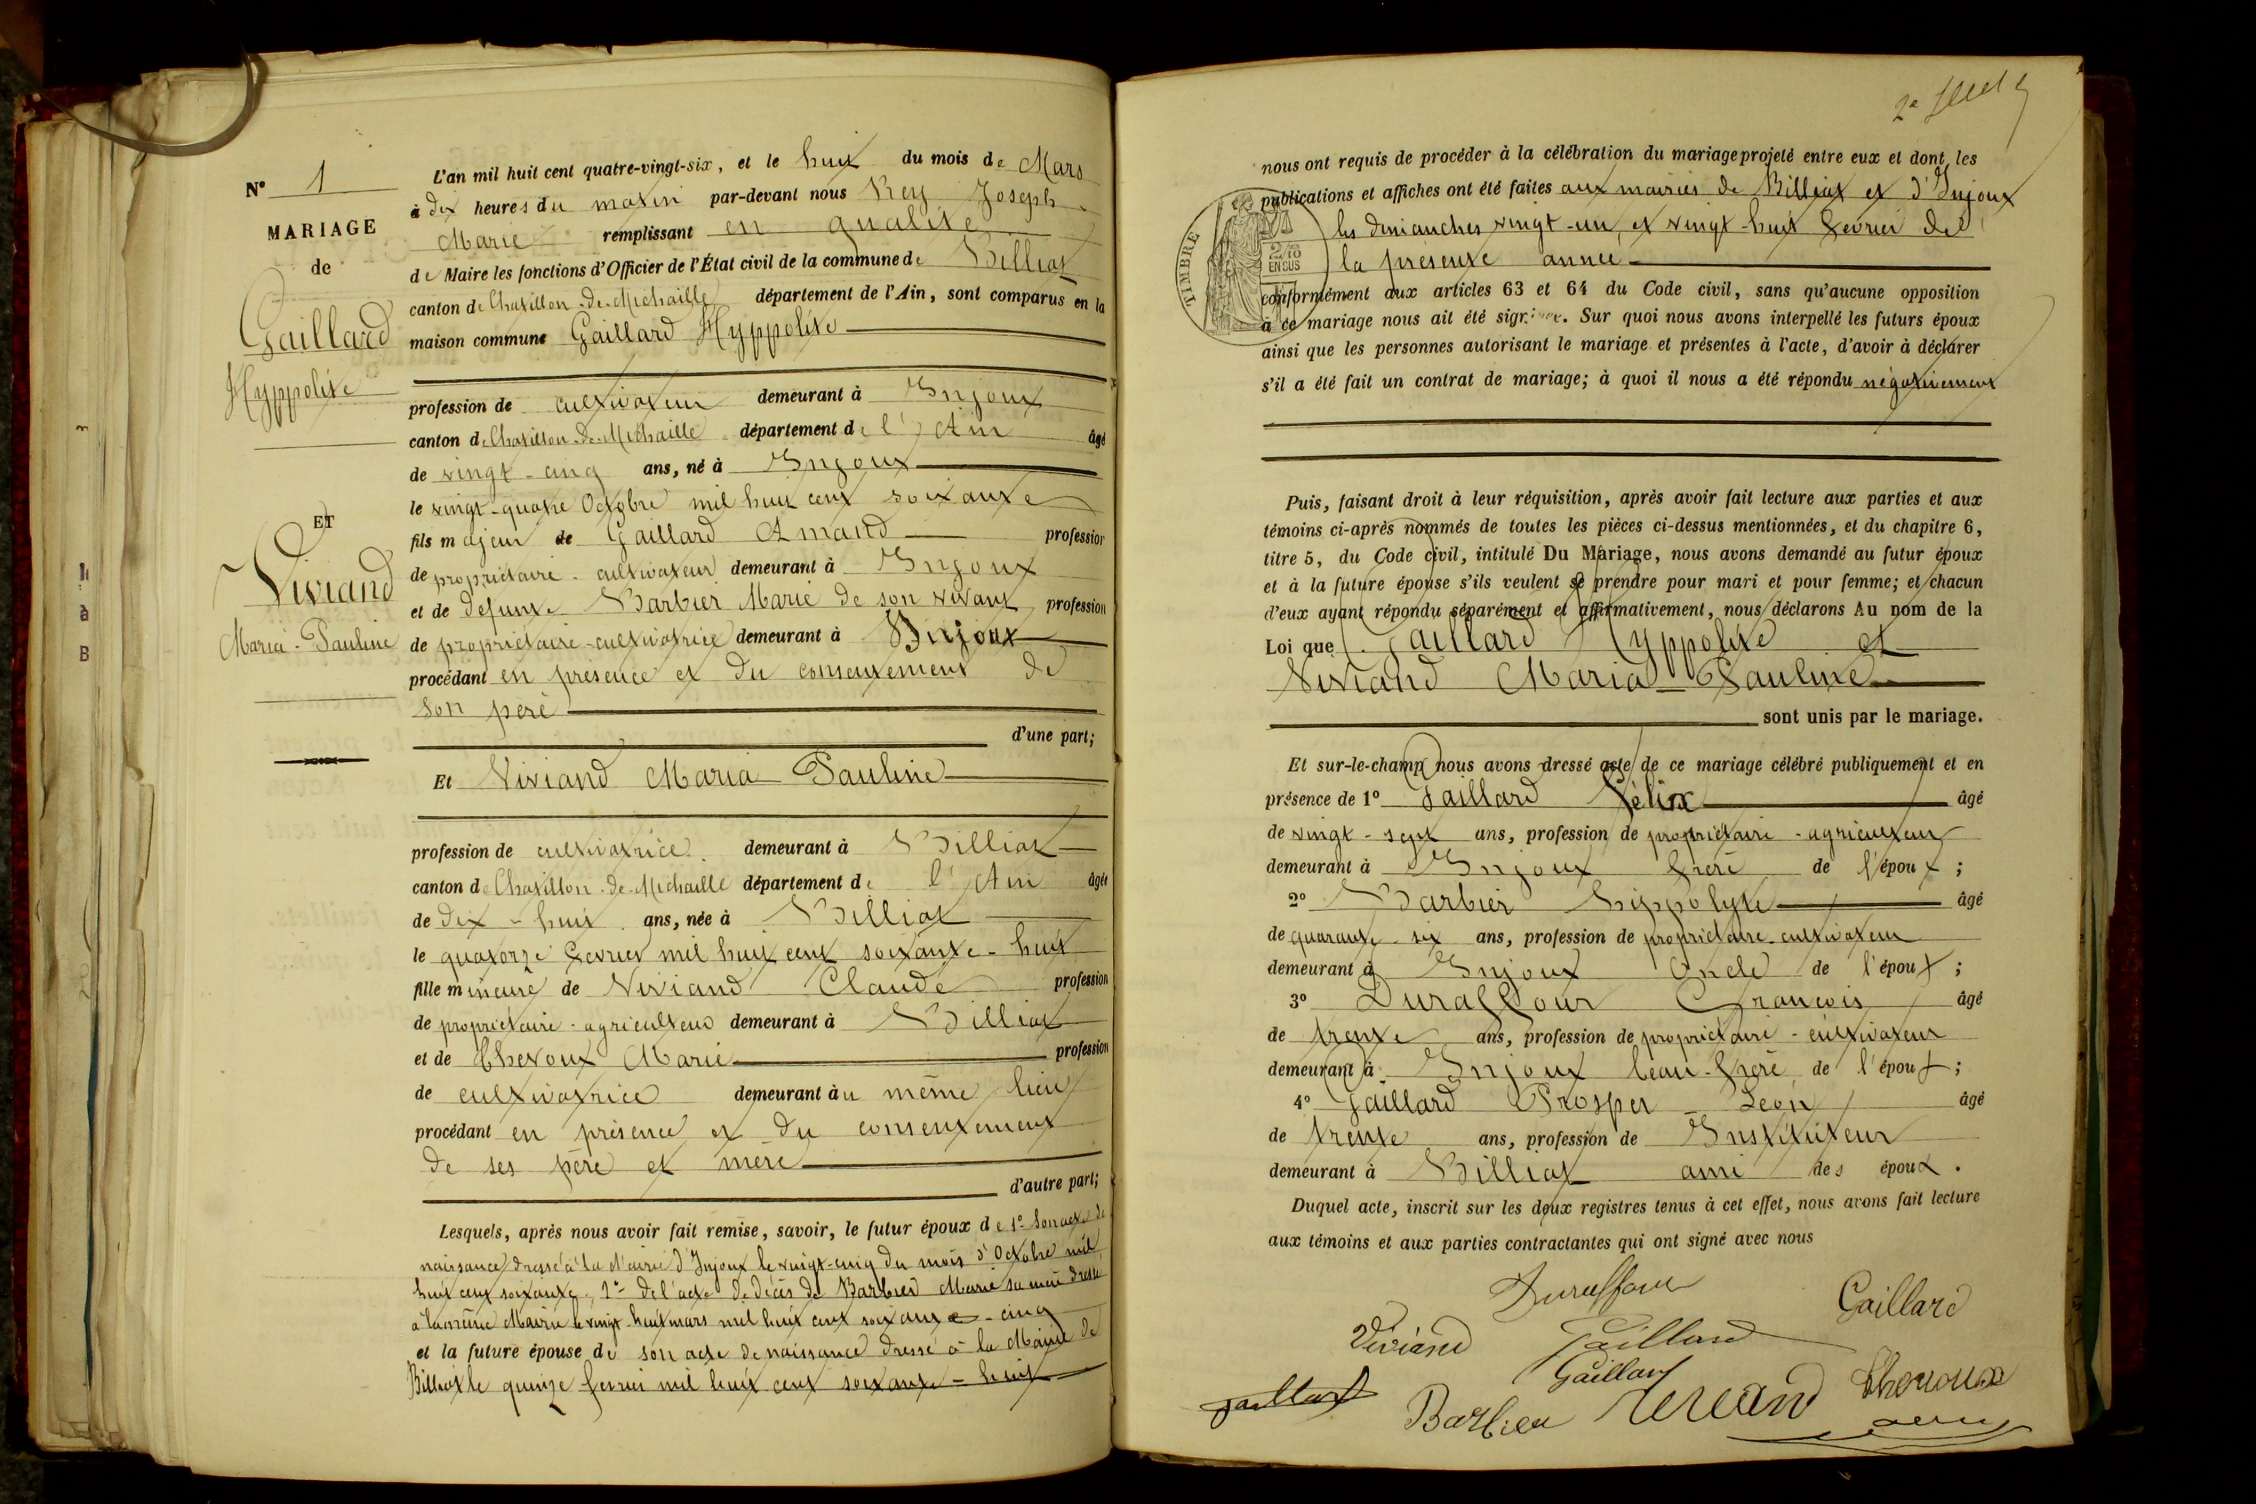 N° 1
MARIAGE
de
Gaillard
Hyppolite
ET
Viviand
Maria-Pauline
L'an mil huit cent quatre-vingt-six, et le huit du mois de Mars
à dix heures du matin par-devant nous Rey Joseph
Marie remplissant en qualité
de Maire les fonctions d'Officier de l'État civil de la commune de Billiat
canton de Chatillon-de-Michaille département de l'Ain, sont comparus en la
maison commune Gaillard Hyppolite
profession de cultivateur demeurant à Injoux
canton de Chatillon-de-Michaille département de l'Ain âgé
de vingt-cinq ans, né à Injoux
le vingt-quatre Octobre mil huit cent soixante
fils majeur de Gaillard Amand profession
de propriétaire-cultivateur demeurant à Injoux
et de defunte Barbier Marie de son vivant profession
de propriétaire-cultivatrice demeurant à Injoux
procédant en présence et du consentement de
son père
d'une part;
Et Viviand Maria Pauline
profession de cultivatrice demeurant à Billiat
canton de Chatillon-de-Michaille département de l'Ain âgée
de dix-huit ans, née à Billiat
le quatorze Fevrier mil huit cent soixante-huit
fille mineure de Viviand Claude profession
de propriétaire-agriculteur demeurant à Billiat
et de Chevoux Marie profession
de cultivatrice demeurant au même lieu
procédant en présence et du consentement
de ses père et mère
d'autre part;
Lesquels, après nous avoir fait remise, savoir, le futur époux de 1° Son acte de
naissance dressé à la Mairie d'Injoux le vingt-cinq du mois d'Octobre mil
huit cent soixante, 2° de l'acte de décès de Barbier Marie sa mère dressé
à la même Mairie le vingt-huit mars mil huit cent soixante-cinq
et la future épouse de son acte de naissance dressé à la Mairie de
Billiat le quinze fevrier mil huit cent soixante-huit
2e
nous ont requis de procéder à la célébration du mariage projeté entre eux et dont les
publications et affiches ont été faites aux mairies de Billiat et d'Injoux
les dimanches vingt-un, et vingt-huit Fevrier de
la présente année
TIMBRE
2/10
EN SUS
conformément aux articles 63 et 64 du Code civil, sans qu'aucune opposition
à ce mariage nous ait été signifiée. Sur quoi nous avons interpellé les futurs époux
ainsi que les personnes autorisant le mariage et présentes à l'acte, d'avoir à déclarer
s'il a été fait un contrat de mariage; à quoi il nous a été répondu négativement
Puis, faisant droit à leur réquisition, après avoir fait lecture aux parties et aux
témoins ci-après nommés de toutes les pièces ci-dessus mentionnées, et du chapitre 6,
titre 5, du Code civil, intitulé Du Mariage, nous avons demandé au futur époux
et à la future épouse s'ils veulent se prendre pour mari et pour femme; et chacun
d'eux ayant répondu séparément et affirmativement, nous déclarons Au nom de la
Loi que Gaillard Hyppolite et
Viviand Maria-Pauline
sont unis par le mariage.
Et sur-le-champ nous avons dressé acte de ce mariage célébré publiquement et en
présence de 1° Gaillard Félix âgé
de vingt-sept ans, profession de propriétaire-agriculteur
demeurant à Injoux frère de l'époux;
2° Barbier Hippolyte âgé
de quarante-six ans, profession de propriétaire-cultivateur
demeurant à Injoux Oncle de l'époux;
3° Duraffour François âgé
de trente ans, profession de propriétaire-cultivateur
demeurant à Injoux beau-frère de l'époux;
4° Gaillard Prosper-Léon âgé
de trente ans, profession de Instituteur
demeurant à Billiat ami des époux.
Duquel acte, inscrit sur les deux registres tenus à cet effet, nous avons fait lecture
aux témoins et aux parties contractantes qui ont signé avec nous
Duraffour
Gaillard
Viviand Gaillard
Gaillard
Gaillard Barbier Viviand Chevoux